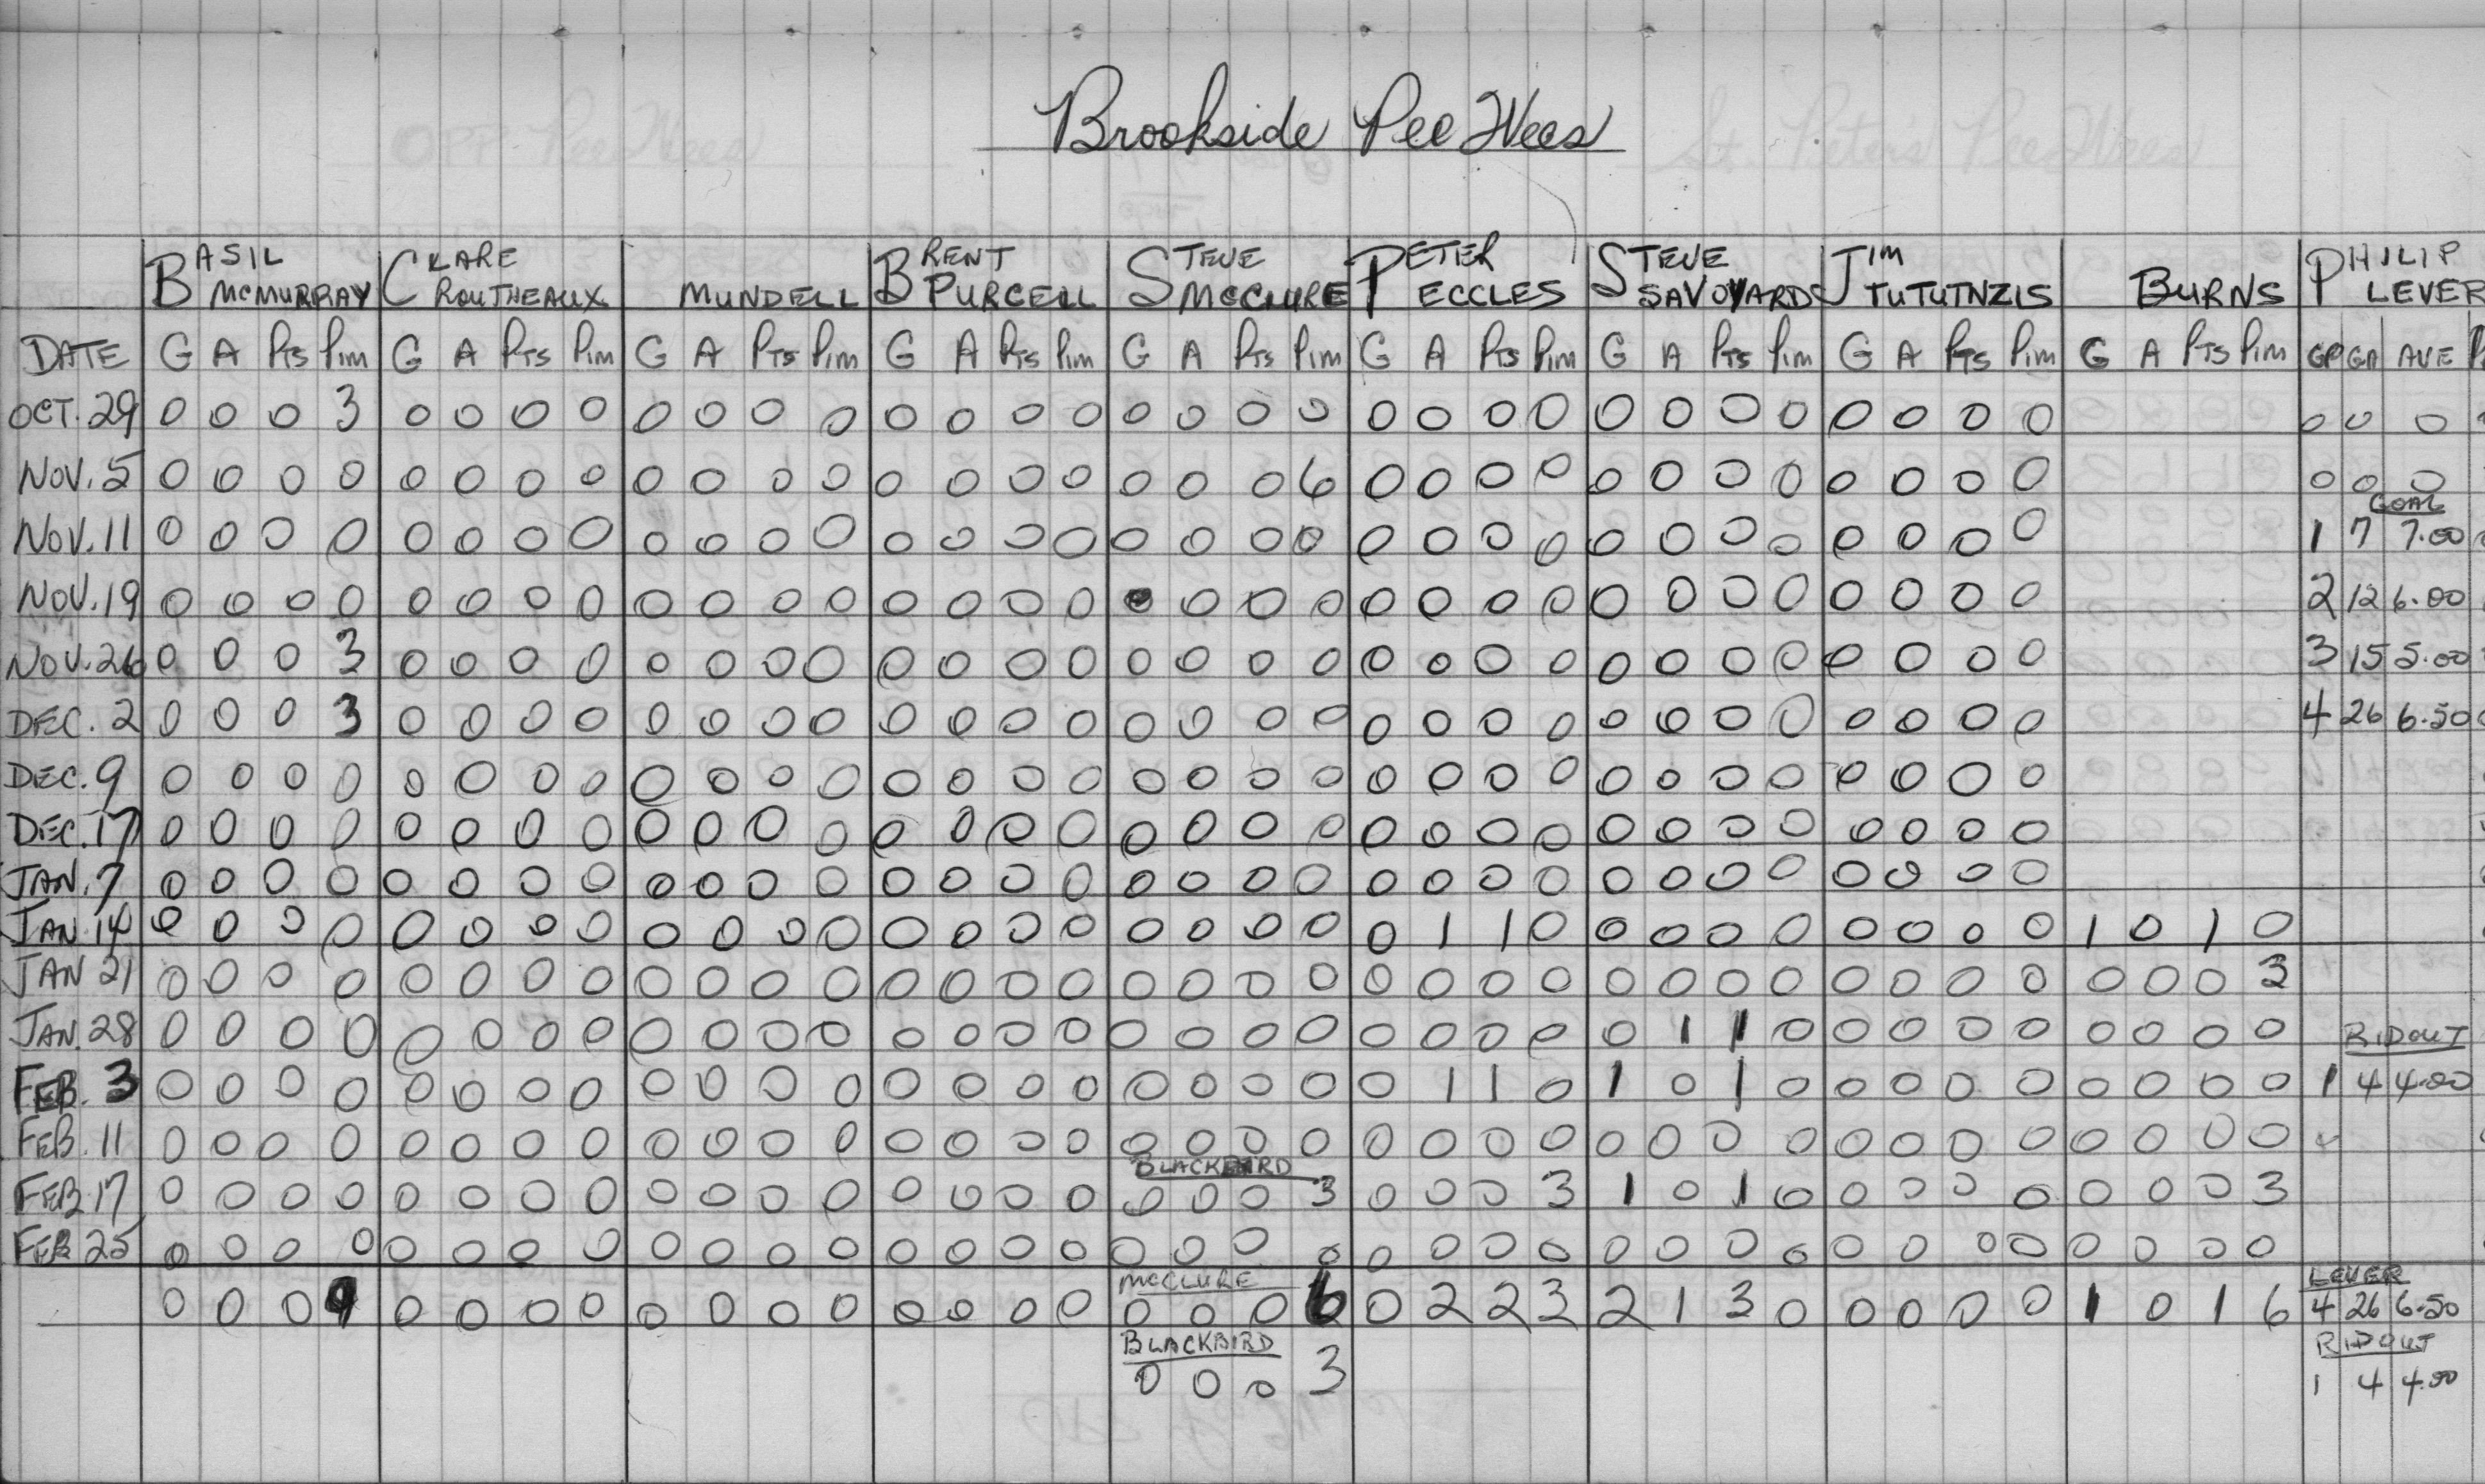 Brookside Pee Wees
BASIL McMURRAY CLARE ROUTHEAUX MUNDELL BRENT PURCELL STEVE McCLURE PETER ECCLES STEVE SAVOYARDS JIM TUTUTNZIS BURNS PHILIP LEVER
DATE G A PTS PIM G A PTS PIM G A PTS PIM G A PTS PIM G A PTS PIM G A PTS PIM G A PTS PIM G A PTS PIM G A PTS PIM GP GA AVE
OCT. 29 0 0 0 3 0 0 0 0 0 0 0 0 0 0 0 0 0 0 0 0 0 0 0 0 0 0 0 0 0 0 0 0 0 0 0
NOV. 5 0 0 0 0 0 0 0 0 0 0 0 0 0 0 0 0 0 0 0 6 0 0 0 0 0 0 0 0 0 0 0 0 0 0 0
GOAL
NOV. 11 0 0 0 0 0 0 0 0 0 0 0 0 0 0 0 0 0 0 0 0 0 0 0 0 0 0 0 0 0 0 0 0 1 7 7.00
NOV. 19 0 0 0 0 0 0 0 0 0 0 0 0 0 0 0 0 0 0 0 0 0 0 0 0 0 0 0 0 0 0 0 2 12 6.00
NOV. 26 0 0 0 3 0 0 0 0 0 0 0 0 0 0 0 0 0 0 0 0 0 0 0 0 0 0 0 0 0 0 0 0 3 15 5.00
DEC. 2 0 0 0 3 0 0 0 0 0 0 0 0 0 0 0 0 0 0 0 0 0 0 0 0 0 0 0 0 0 0 0 0 4 26 6.50
DEC. 9 0 0 0 0 0 0 0 0 0 0 0 0 0 0 0 0 0 0 0 0 0 0 0 0 0 0 0 0 0 0 0 0
DEC. 17 0 0 0 0 0 0 0 0 0 0 0 0 0 0 0 0 0 0 0 0 0 0 0 0 0 0 0 0 0 0 0 0
JAN. 7 0 0 0 0 0 0 0 0 0 0 0 0 0 0 0 0 0 0 0 0 0 0 0 0 0 0 0 0 0 0 0 0
JAN. 14 0 0 0 0 0 0 0 0 0 0 0 0 0 0 0 0 0 0 0 0 0 1 1 0 0 0 0 0 0 0 0 0 1 0 1 0
JAN 21 0 0 0 0 0 0 0 0 0 0 0 0 0 0 0 0 0 0 0 0 0 0 0 0 0 0 0 0 0 0 0 0 0 0 0 3
JAN. 28 0 0 0 0 0 0 0 0 0 0 0 0 0 0 0 0 0 0 0 0 0 0 0 0 0 1 1 0 0 0 0 0 0 0 0 0 RIDOUT
FEB. 3 0 0 0 0 0 0 0 0 0 0 0 0 0 0 0 0 0 0 0 0 0 1 1 0 1 0 1 0 0 0 0 0 0 0 0 0 1 4 4.00
FEB. 11 0 0 0 0 0 0 0 0 0 0 0 0 0 0 0 0 0 0 0 0 0 0 0 0 0 0 0 0 0 0 0 0 0 0 0 0
BLACKBIRD
FEB. 17 0 0 0 0 0 0 0 0 0 0 0 0 0 0 0 0 0 0 0 3 0 0 0 3 1 0 1 0 0 0 0 0 0 0 0 3
FEB 25 0 0 0 0 0 0 0 0 0 0 0 0 0 0 0 0 0 0 0 0 0 0 0 0 0 0 0 0 0 0 0 0 0 0 0 0
McCLURE LEVER
0 0 0 9 0 0 0 0 0 0 0 0 0 0 0 0 0 0 0 6 0 2 2 3 2 1 3 0 0 0 0 0 1 0 1 6 4 26 6.50
BLACKBIRD RIDOUT
0 0 0 3 1 4 4.00